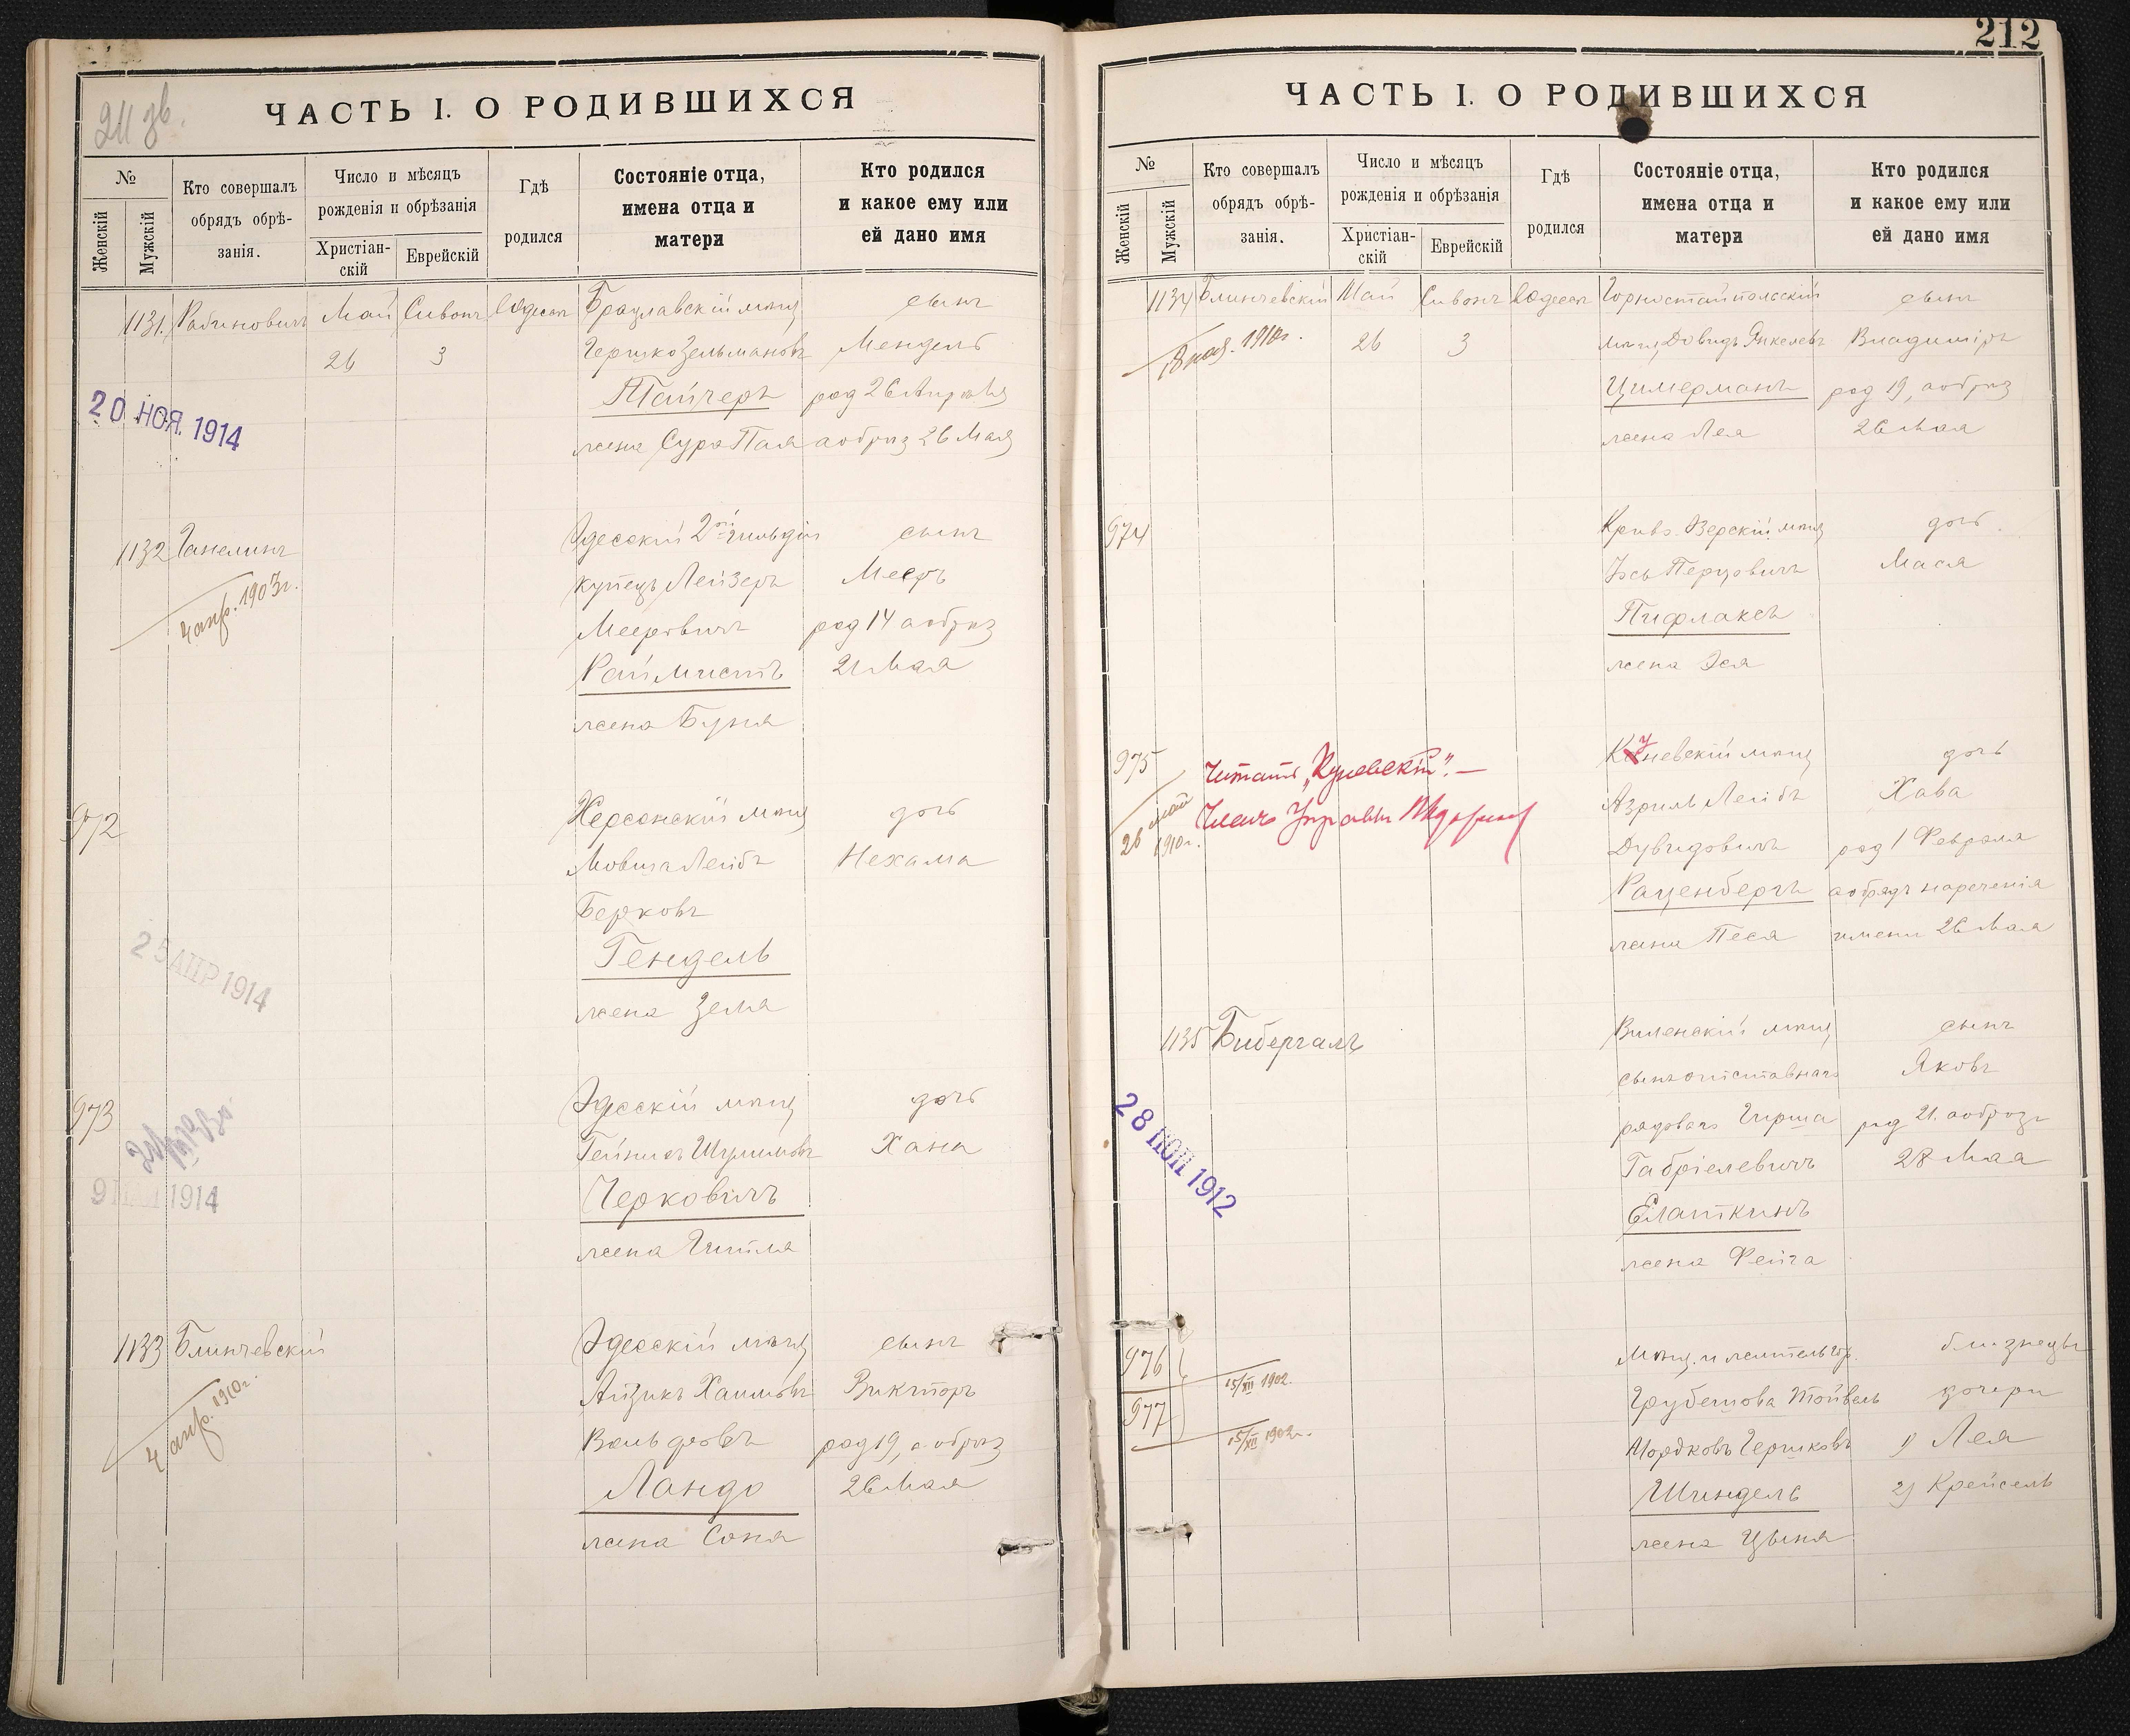 211 зв.
ЧАСТЬ I. О РОДИВШИХСЯ
№
Женскій
Мужскій
Кто совершалъ
обрядъ обрѣ-
занія.
Число и мѣсяцъ
рожденія и обрѣзанія
Христіан-
скій
Еврейскій
Гдѣ
родился
Состояніе отца,
имена отца и
матери
Кто родился
и какое ему или
ей дано имя
1131 Рабиновичъ Май Сивонъ Одессѣ Брацлавскій мѣщ сынъ
26 3 Гершко Зельмановъ Мендель
Тайчеръ род 26 Апрѣля
20 НОЯ. 1914
жена Сура Пая а обрѣз 26 Мая
1132 Ганелинъ Одесскій 2ой гильдіи сынъ
4 апр. 1903г. купецъ Лейзеръ Мееръ
Мееровичъ род 14 а обрѣз
Раймистъ 21 Мая
жена Буня
972 Херсонскій мѣщ дочь
Мовша Лейбъ Нехама
Берковъ
Гендель
25 АПР 1914
жена Зелта
973 Одесскій мѣщ дочь
Шулимовъ Хана
9 1914
Черковичъ
жена Гитля
1133 Блинчевскій Одесскій мѣщ сынъ
4 апр. 1910г. Айзикъ Хаимовъ Викторъ
Вольфовъ род 19, а обрѣз
Ландо 26 Мая
жена Соня
212
ЧАСТЬ I. О РОДИВШИХСЯ
№
Женскій
Мужскій
Кто совершалъ
обрядъ обрѣ-
занія.
Число и мѣсяцъ
рожденія и обрѣзанія
Христіан-
скій
Еврейскій
Гдѣ
родился
Состояніе отца,
имена отца и
матери
Кто родился
и какое ему или
ей дано имя
1134 Блинчевскій Май Сивонъ Одессѣ Горностайпольскій сынъ
1910г. 26 3 мѣщ Довидъ Янкелевъ Владиміръ
Цимерманъ род 19, а обрѣз
жена Лея 26 Мая
974 Криво Озерскій мѣщ дочь
Іось Перцовичъ Мася
Пифлаксъ
жена Эся
975 Читать „Куневскій". — Куневскій мѣщ дочь
26 май 1910г. Членъ Управы Азриль Лейбъ Хава
Дувидовичъ род 1 Февраля
Раценбергъ а обрядъ нареченія
жена Песя имени 26 Мая
1135 Бибергалъ Виленскій мѣщ сынъ
сынъ отставнаго Яковъ
рядоваго Гирша род 21. а обрѣз
28 1912
Габріелевичъ 28 Мая
Елаткинъ
жена Фейга
976 15/XII 1902. Мѣщ. и жительгор. близнецы
977 15/XII 1902г. Грубешова Тойвель дочери
Мордковъ Гершковъ 1) Лея
Шиндель 2) Крейсель
жена Цыня